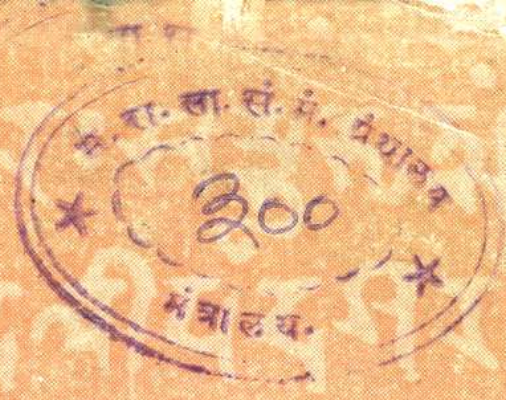 म. रा. ला. सं. मं. ग्रंथालय
३००
मंत्रालय.